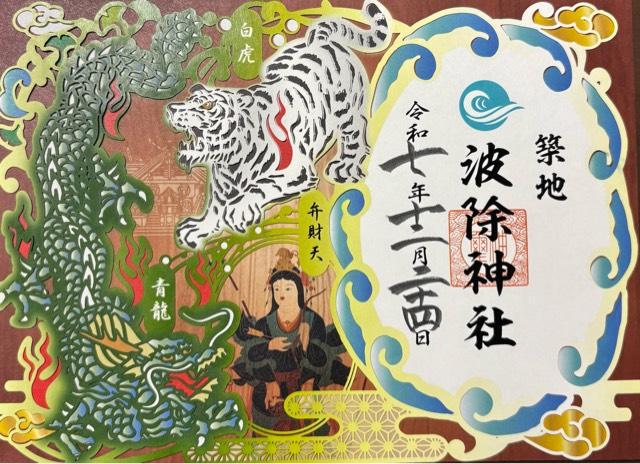 築地
波除神社
令和七年十二月二十四日
白虎
弁財天
青龍